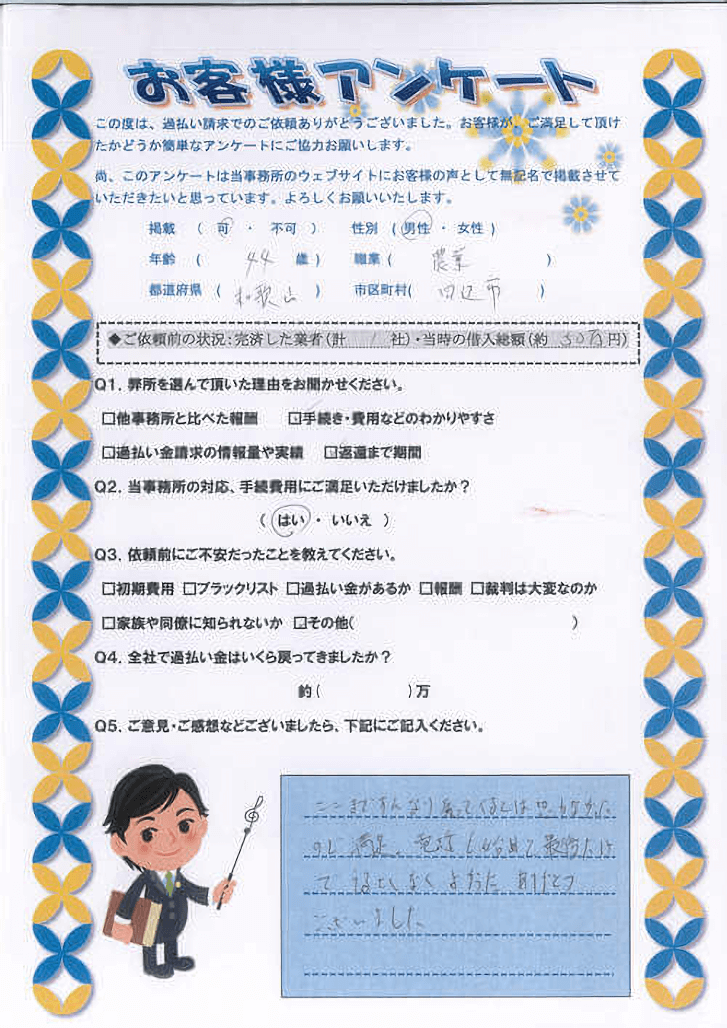 お客様アンケート
この度は、過払い請求でのご依頼ありがとうございました。お客様が、ご満足して頂け
たかどうか簡単なアンケートにご協力お願いします。
尚、このアンケートは当事務所のウェブサイトにお客様の声として無記名で掲載させて
いただきたいと思っています。よろしくお願いいたします。
掲載 ( 可 ・ 不可 ) 性別 ( 男性 ・ 女性 )
年齢 ( 44 歳 ) 職業 ( 農業 )
都道府県 ( 和歌山 ) 市区町村( 田辺市 )
◆ご依頼前の状況:完済した業者(計 1 社)・当時の借入総額(約 50万 円)
Q1. 弊所を選んで頂いた理由をお聞かせください。
□他事務所と比べた報酬 □手続き・費用などのわかりやすさ
□過払い金請求の情報量や実績 □返還まで期間
Q2. 当事務所の対応、手続費用にご満足いただけましたか?
( はい ・ いいえ )
Q3. 依頼前にご不安だったことを教えてください。
□初期費用 □ブラックリスト □過払い金があるか □報酬 □裁判は大変なのか
□家族や同僚に知られないか □その他( )
Q4. 全社で過払い金はいくら戻ってきましたか?
約( )万
Q5. ご意見・ご感想などございましたら、下記にご記入ください。
ここまですんなり戻ってくるとは思わなかった
ので 満足。電話し始めて 最高だけ
で なくよかった ありがとう
ございました